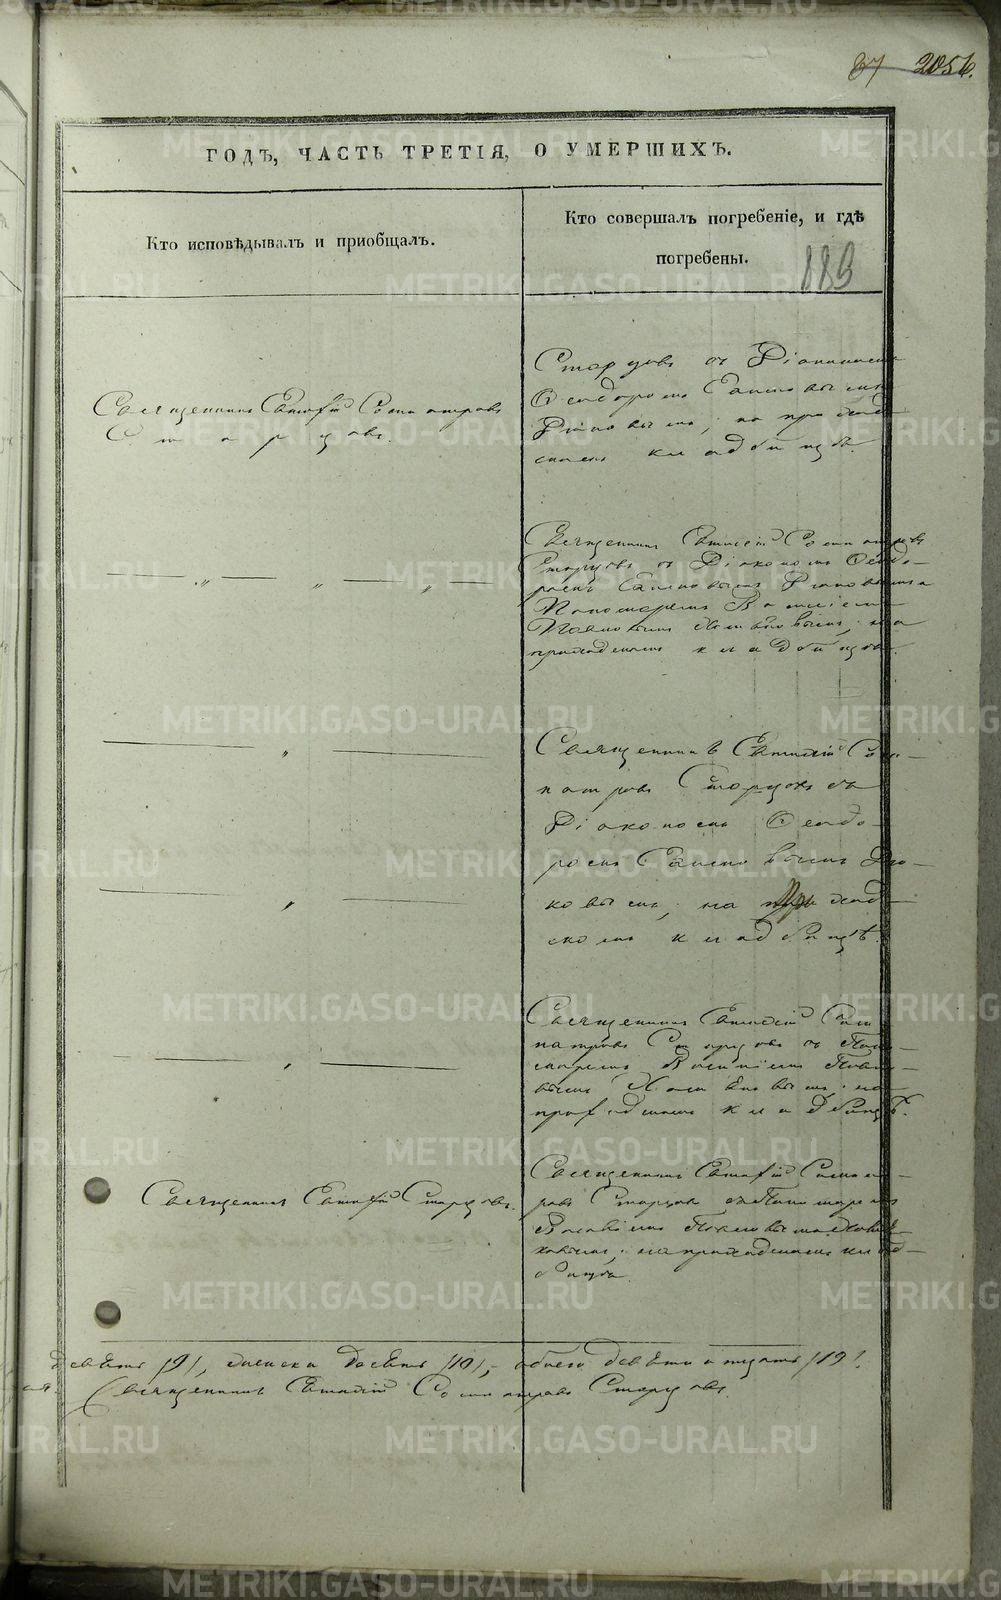 87 205б.
ГОДЪ, ЧАСТЬ ТРЕТІЯ, О УМЕРШИХЪ.
Кто исповѣдывалъ и приобщалъ.
Кто совершалъ погребеніе, и гдѣ
погребены.
889
Священникъ Евтихій Сосипатровъ
Старцовъ.
Старцовъ съ Діакономъ
Ѳеодоромъ
на приход-
скомъ кладбищѣ.
— „ — „ — „ —
Священникъ Евтихій Сосипатровъ
Старцовъ съ Діакономъ Ѳеодо-
ромъ
Пономаремъ Василіемъ
Павловымъ на
приходскомъ кладбищѣ.
— „ —
Священникъ Евтихій Соси-
патровъ Старцовъ съ
Діакономъ Ѳеодо-
ромъ
ковымъ, на приход-
скомъ кладбищѣ.
— „ —
Священникъ Евтихій Соси
патровъ Старцовъ съ Поно-
маремъ Василіемъ Павло-
вымъ на
приходскомъ кладбищѣ.
— „ —
Священникъ Евтихій Старцовъ.
Священникъ Евтихій Сосипат-
ровъ Старцовъ съ Пономаремъ
Василіемъ Павловымъ
на приходскомъ клад-
бищѣ.
девять /9/, женска десять /10/, обоего девятнатцать /19/.
Священникъ Евтихій Сосипатровъ Старцовъ.
METRIKI.GASO-URAL.RU